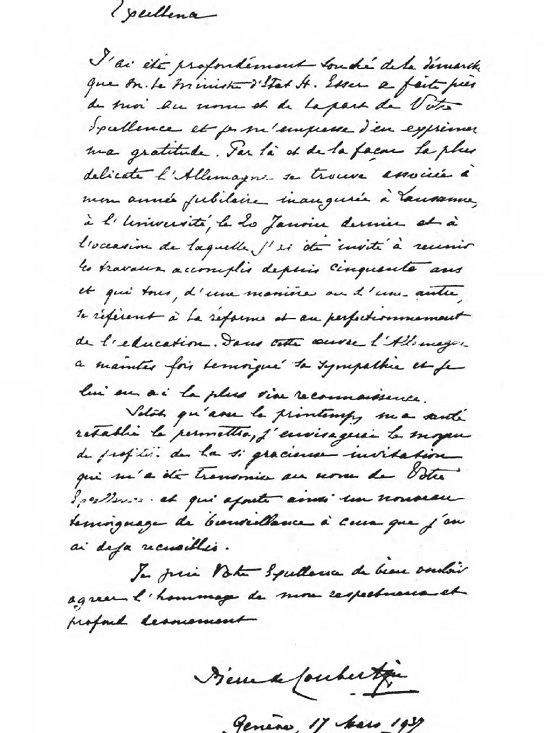 Excellence
J'ai été profondément touché de la démarche
que M. le Ministre d'Etat H. Esser a faite près
de moi au nom et de la part de Votre
Excellence et je m'empresse d'en exprimer
ma gratitude. Par là et de la façon la plus
délicate l'Allemagne se trouve associée à
mon année jubilaire inaugurée à Lausanne,
à l'Université, le 20 Janvier dernier et à
l'occasion de laquelle j'ai été invité à réunir
les travaux accomplis depuis cinquante ans
et qui tous, d'une manière ou d'une autre,
se réfèrent à la réforme et au perfectionnement
de l'éducation. Dans cette œuvre l'Allemagne
a maintes fois témoigné sa sympathie et je
lui en ai la plus vive reconnaissance.
Sitôt qu'avec le printemps, ma santé
rétablie le permettra, j'envisagerai le moyen
de profiter de la si gracieuse invitation
qui m'a été transmise au nom de Votre
Excellence et qui ajoute ainsi un nouveau
témoignage de bienveillance à ceux que j'en
ai déjà recueillis.
Je prie Votre Excellence de bien vouloir
agréer l'hommage de mon respectueux et
profond dévouement
Pierre de Coubertin
Genève, 17 Mars 1937